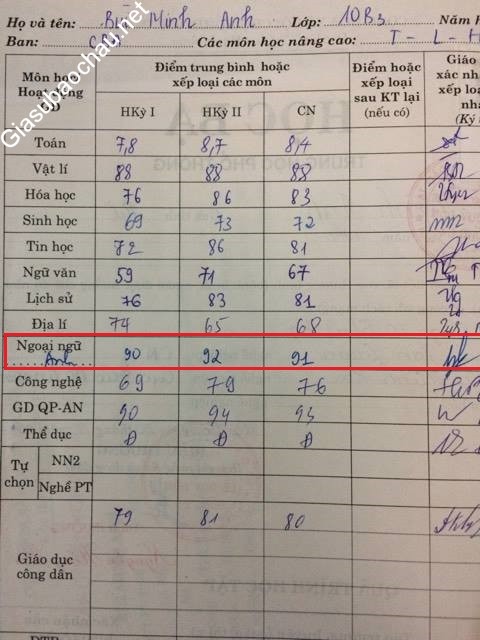 Họ và tên: Bùi Minh Anh Lớp: 10B3 Năm h
Ban: CBA Các môn học nâng cao: T - L - H
Giasubaochau.net
Môn học Hoạt động GD
Điểm trung bình hoặc xếp loại các môn
HKỳ I HKỳ II CN
Điểm hoặc xếp loại sau KT lại (nếu có)
Giáo xác nh xếp loạ nhậ (Ký
Toán 7,8 8,7 8,4
Vật lí 88 88 88
Hóa học 76 86 83
Sinh học 69 73 72
Tin học 72 86 81
Ngữ văn 59 71 67
Lịch sử 76 83 81
Địa lí 74 65 68
Ngoại ngữ Anh 90 92 91
Công nghệ 69 79 76
GD QP-AN 90 94 93
Thể dục Đ Đ Đ
Tự chọn
NN2
Nghề PT
79 81 80
Giáo dục công dân